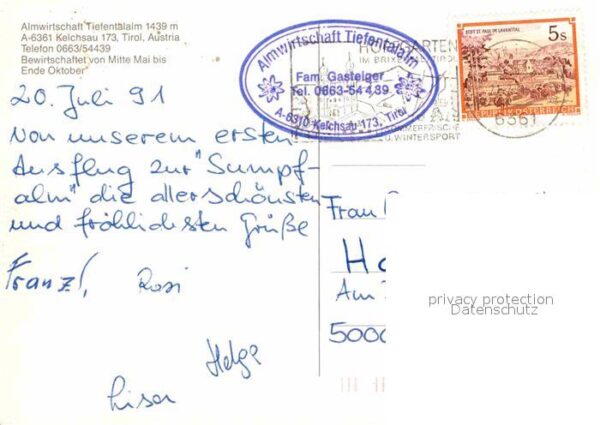 Almwirtschaft Tiefentalalm 1439 m
A-6361 Kelchsau 173, Tirol, Austria
Telefon 0663/54439
Bewirtschaftet von Mitte Mai bis
Ende Oktober
Almwirtschaft Tiefentalalm
Fam. Gasteiger
Tel. 0663-54439
A-6310 Kelchsau 173, Tirol
IM BRIXEN
SOMMERFRISCHE
U. WINTERSPORT
6361
STIFT ST. PAUL IM LAVANTTAL
5s
REPUBLIK ÖSTERREICH
20. Juli 91
Von unserem ersten
Ausflug zur "Sumpf-
alm" die allerschönsten
und fröhlichsten Grüße
Franzl, Rosi
Helga
Lisa
Frau
H
Am
5000
privacy protection
Datenschutz